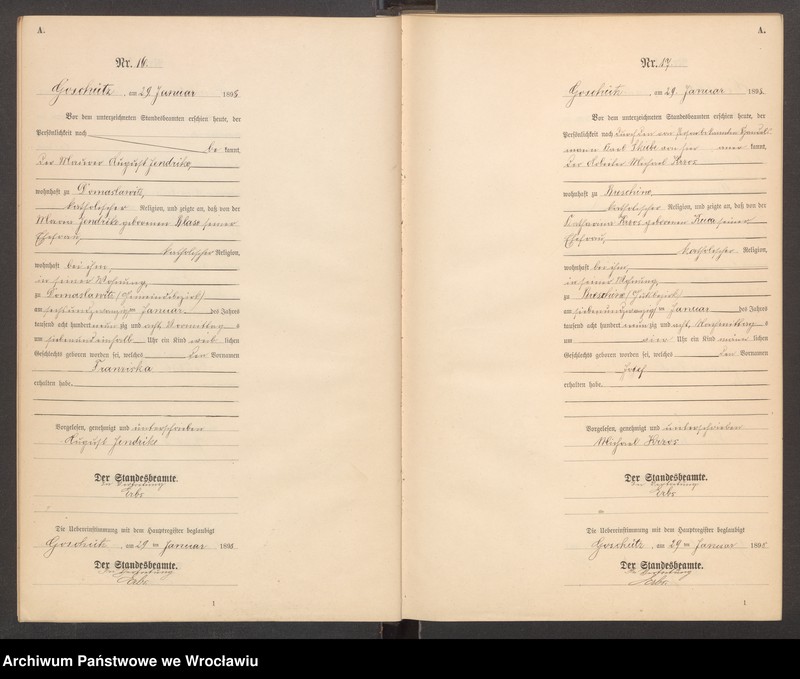 A.
Nr. 16
Goschütz, am 29. Januar 1898.
Vor dem unterzeichneten Standesbeamten erschien heute, der
Persönlichkeit nach
be kannt,
der Maurer August Jendrike,
wohnhaft zu Domaslawitz,
katholischer Religion, und zeigte an, daß von der
Maria Jendrike geborenen Klase seiner
Ehefrau,
katholischer Religion,
wohnhaft bei ihm,
in seiner Wohnung,
zu Domaslawitz (Gemeindebezirk)
am sechsundzwanzigsten Januar des Jahres
tausend acht hundert neunzig und acht Vormittags
um siebenundeinhalb Uhr ein Kind weiblichen
Geschlechts geboren worden sei, welches den Vornamen
Franziska
erhalten habe.
Vorgelesen, genehmigt und unterschrieben
August Jendrike
Der Standesbeamte.
In Vertretung
Erbs
Die Uebereinstimmung mit dem Hauptregister beglaubigt
Goschütz, am 29ten Januar 1898
Der Standesbeamte.
In Vertretung
Erbs
1
A.
Nr. 17
Goschütz, am 29. Januar 1898.
Vor dem unterzeichneten Standesbeamten erschien heute, der
Persönlichkeit nach durch den
mann Karl von hier aner kannt,
der Arbeiter Michael Kroos
wohnhaft zu
katholischer Religion, und zeigte an, daß von der
Katharina Kroos geborenen Kuca seiner
Ehefrau,
katholischer Religion,
wohnhaft bei ihm,
in seiner Wohnung,
zu (Gutsbezirk)
am siebenundzwanzigsten Januar des Jahres
tausend acht hundert neunzig und acht, Nachmittags
um vier Uhr ein Kind männlichen
Geschlechts geboren worden sei, welches den Vornamen
Josef
erhalten habe.
Vorgelesen, genehmigt und unterschrieben
Michael Kroos
Der Standesbeamte.
In Vertretung
Erbs
Die Uebereinstimmung mit dem Hauptregister beglaubigt
Goschütz, am 29ten Januar 1898
Der Standesbeamte.
In Vertretung
Erbs
1
Archiwum Państwowe we Wrocławiu